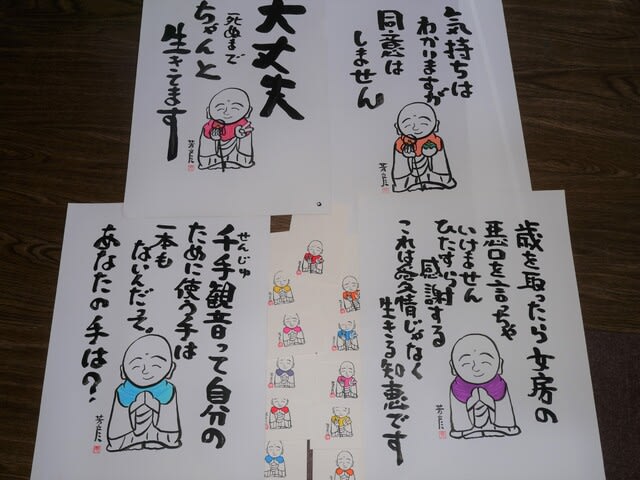 大丈夫
死ぬまで
ちゃんと
生きてます
気持ちは
わかりますが
同意は
しません
せんじゅ
千手観音って自分の
ために使う手は
一本も
ないんだって。
あなたの手は?
歳を取ったら女房の
悪口を言っちゃ
いけません
ひたすら
感謝する
これは愛情じゃなく
生きる知恵です